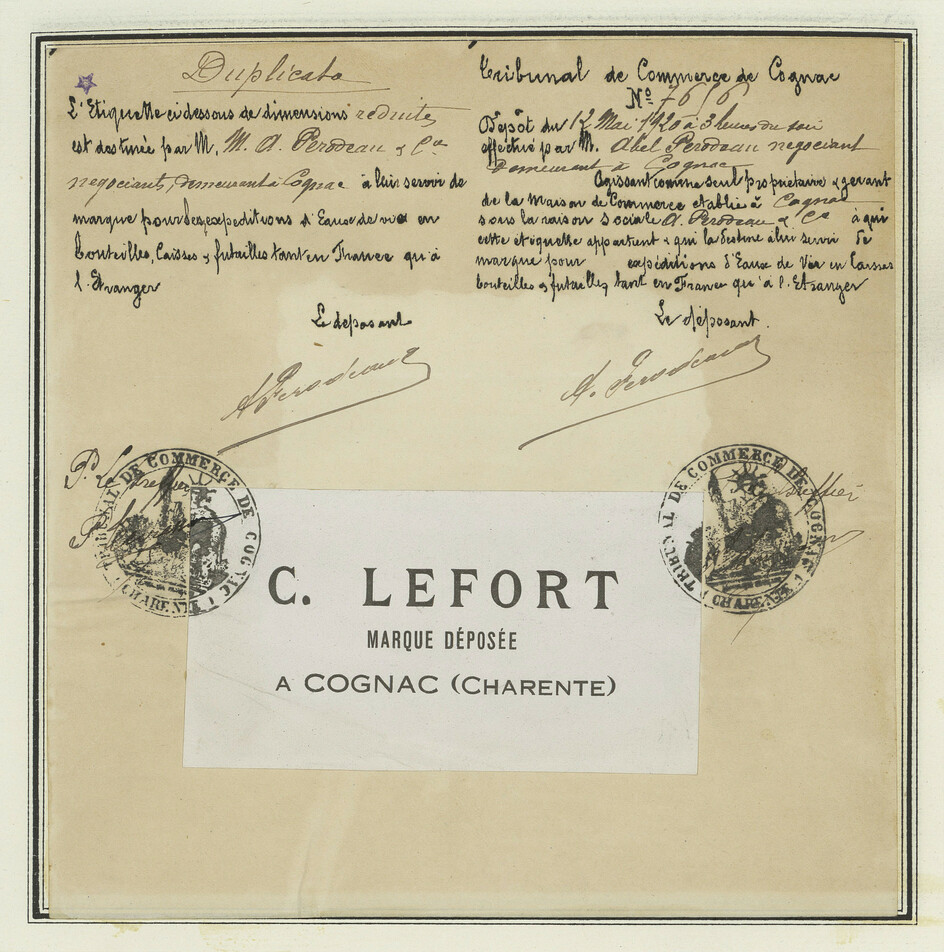 Duplicata
L'Etiquette ci dessous de dimensions réduites
est destinée par M. M. A. Perodeau & Cie
negociants, demeurant à Cognac à leur servir de
marque pour les expeditions d'Eaux de vie en
bouteilles, Caisses & futailles tant en France qu'à
l'Etranger
Le déposant
A Perodeau
P. Le Greffier
Tribunal de Commerce de Cognac
Nº
Dépôt du 12 Mai 1920 à 3 heures du soir
effectué par M. Abel Perodeau negociant
demeurant à Cognac
Agissant comme seul propriétaire & gerant
de la Maison de Commerce etablie à Cognac
sous la raison sociale A. Perodeau & Cie à qui
cette étiquette appartient & qui la destine à lui servir de
marque pour expéditions d'Eaux de Vie en Caisses
bouteilles & futailles tant en France qu'à l'Etranger
Le déposant.
A. Perodeau
Greffier
TRIBUNAL DE COMMERCE DE COGNAC
(CHARENTE)
TRIBUNAL DE COMMERCE DE COGNAC
(CHARENTE)
C. LEFORT
MARQUE DÉPOSÉE
A COGNAC (CHARENTE)